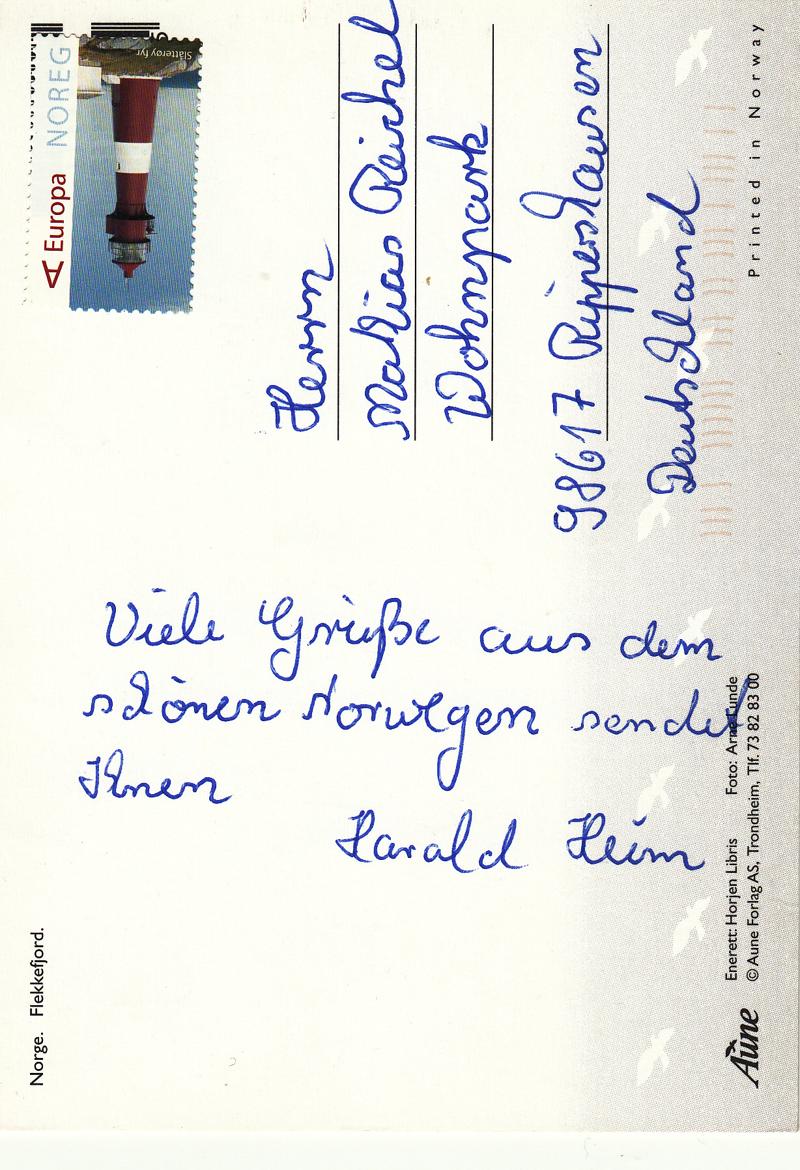 Norge. Flekkefjord.
Viele Grüße aus dem
schönen Norwegen sendet
Ihnen
Harald Heim
A Europa NOREG
Slåtterøy fyr
Herrn
Mathias Reichel
Wohnpark
98617 Rippershausen
Deutschland
Aune
Enerett: Horjen Libris Foto: Arne Lunde
© Aune Forlag AS, Trondheim, Tlf. 73 82 83 00
Printed in Norway